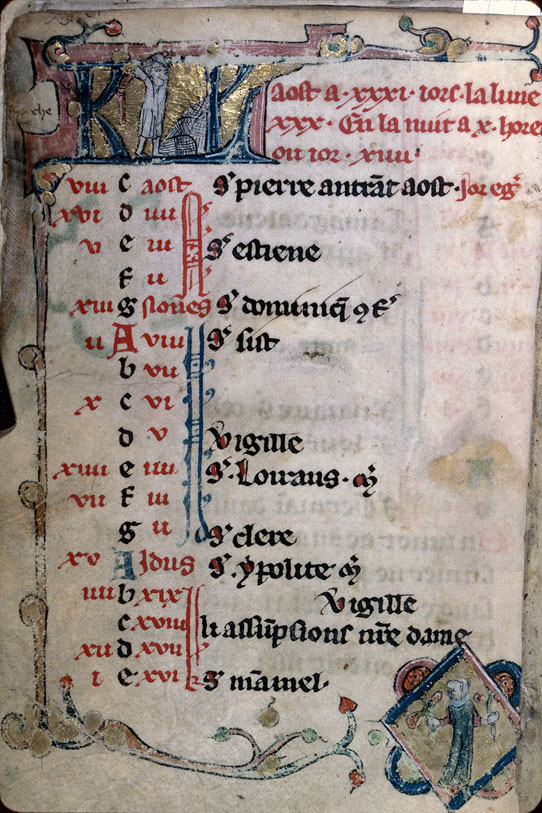 che
KL
aost a·xxxi·iors·la lune
xxx· En la nuit a x·hores
ou ior·xiiii·
viii c aost S· pierre aoust
xvi d iiii
v e iii S· estiene
f ii
xiii g nones S· dominiq
ii A viii S· sist
b vii
x c vi
d v vigille
xviii e iiii S· Lorans· m
vii f iii
g ii S· clere
xv A Idus S· ypolite m
iiii b xix vigille
c xviii li assumpcions nre dame
xii d xvii
i e xvi S· mamel·